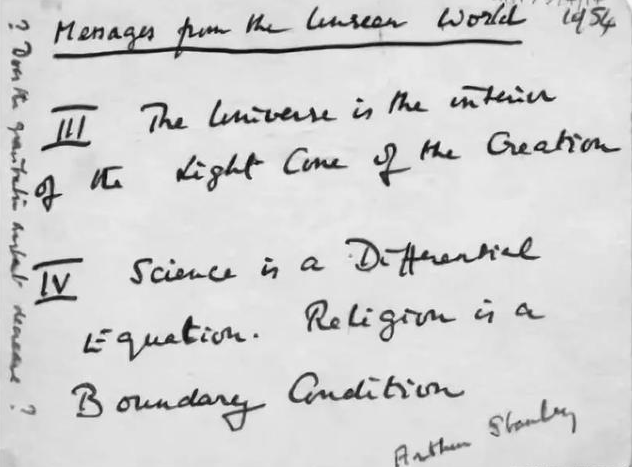 Messages from the Unseen World 1954
III The Universe is the interior
of the Light Cone of the Creation
IV Science is a Differential
Equation. Religion is a
Boundary Condition
Arthur Stanley
? Does the gravitation constant decrease ?